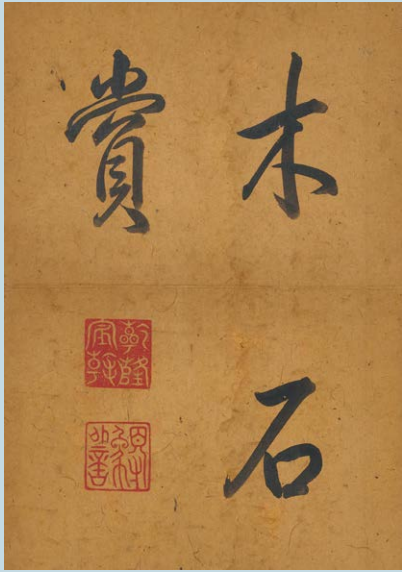 木石
賞
乾隆
宸翰